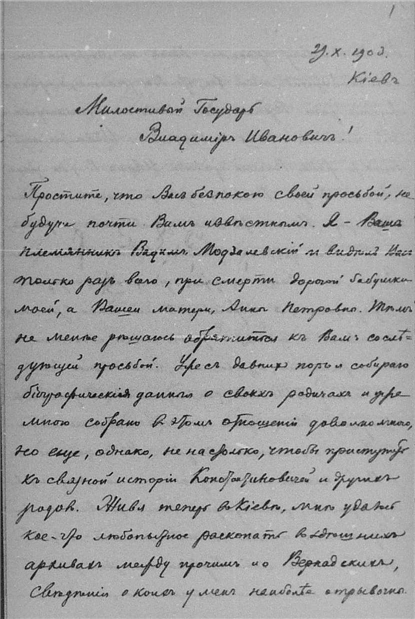 1
29.X.1903.
Кіевъ
Милостивый Государь
Владиміръ Ивановичъ!
Простите, что Васъ безпокою своей просьбой, не
будучи почти Вамъ извѣстнымъ. Я – Вашъ
племянникъ Вадимъ Модзалевскій и видѣлъ Васъ
только разъ всего, при смерти дорогой бабушки
моей, а Вашей матери, Анны Петровны. Тѣмъ
не менѣе рѣшаюсь обратиться къ Вамъ со слѣ-
дующей просьбой. Уже съ давнихъ поръ я собираю
біографическія данныя о своихъ родичахъ и уже
мною собрано въ этомъ отношеніи довольно много,
но еще, однако, не насколько, чтобы приступить
къ связной исторіи Константиновичей и другихъ
родовъ. Живя теперь въ Кіевѣ, мнѣ удалось
кое-что любопытное раскопать въ здѣшнихъ
архивахъ между прочимъ и о Вернадскихъ,
свѣдѣнія о коихъ у меня наиболѣе отрывочны.